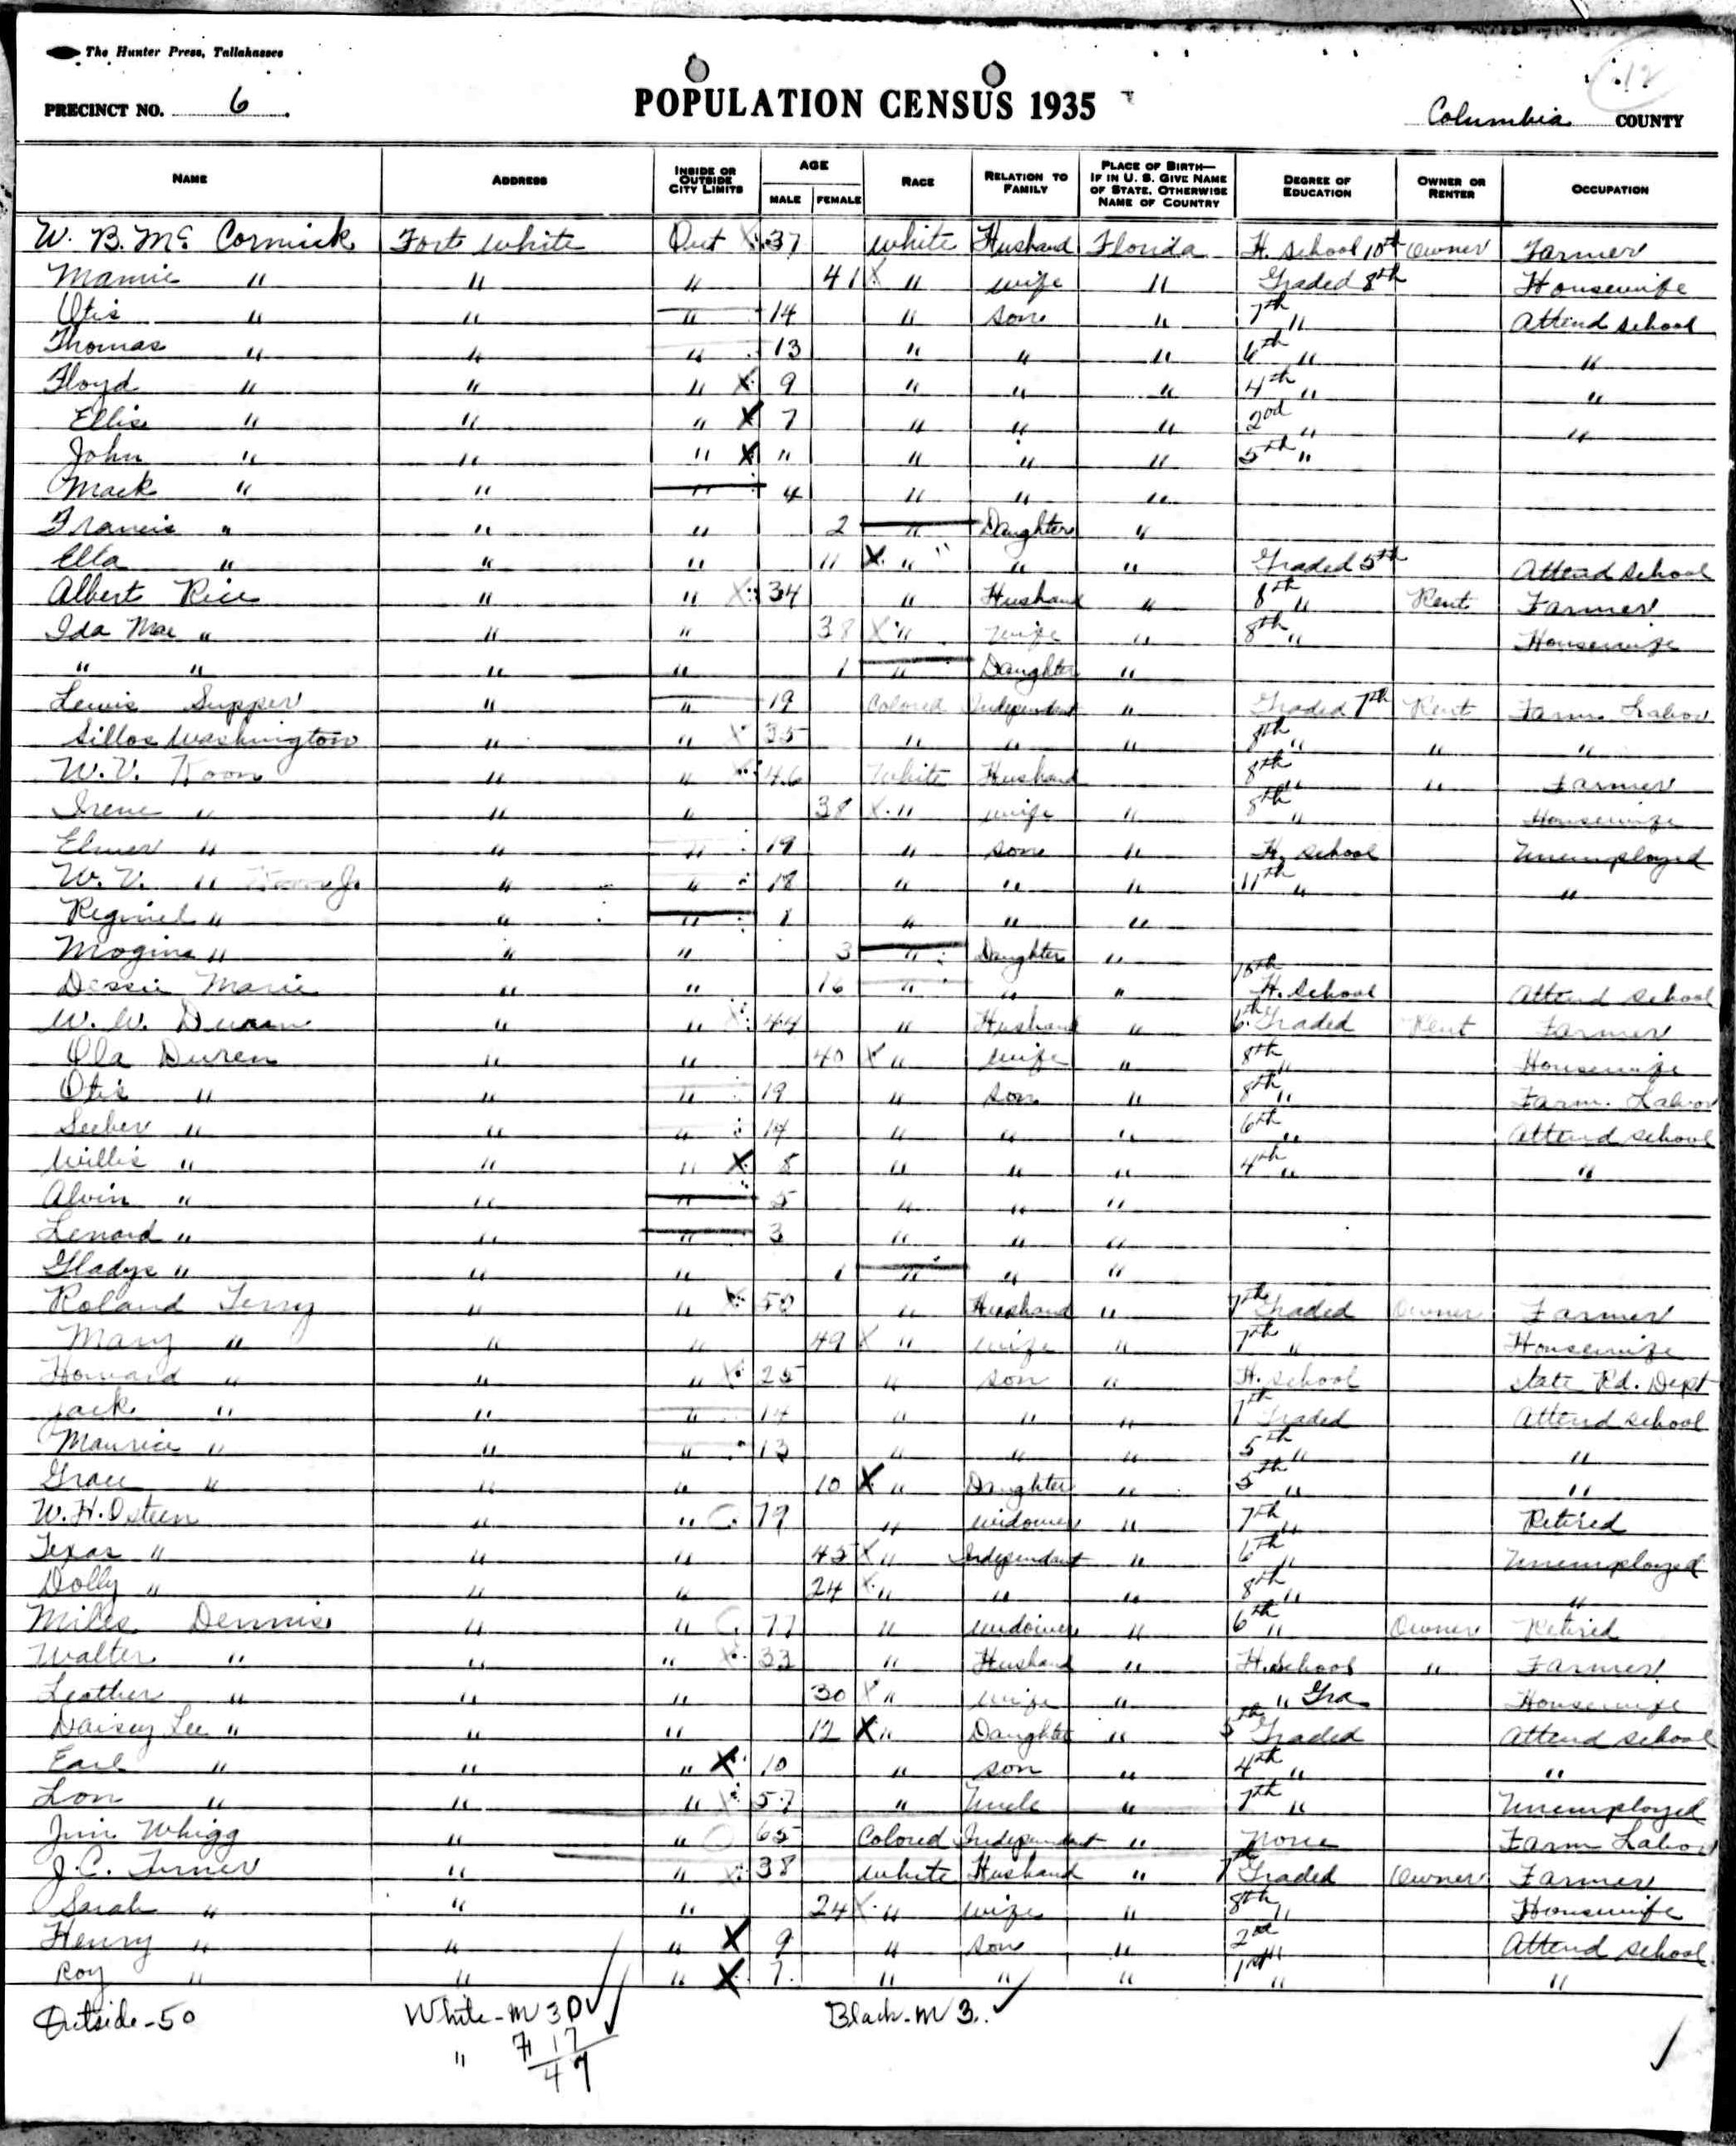 The Hunter Press, Tallahassee
12
PRECINCT NO. 6
POPULATION CENSUS 1935
Columbia COUNTY
NAME ADDRESS INSIDE OR OUTSIDE CITY LIMITS AGE MALE FEMALE RACE RELATION TO FAMILY PLACE OF BIRTH—IF IN U. S. GIVE NAME OF STATE, OTHERWISE NAME OF COUNTRY DEGREE OF EDUCATION OWNER OR RENTER OCCUPATION
W. B. Mc Cormick Fort White Out X 37 White Husband Florida H. School 10th Owner Farmer
Mamie " " " 41 X " wife " Graded 8th Housewife
Otis " " " 14 " son " 7th " Attend school
Thomas " " " 13 " " " 6th " "
Floyd " " " X 9 " " " 4th " "
Ellis " " " X 7 " " " 2nd " "
John " " " X " " " " 5th "
Mack " " " 4 " " "
Francis " " " 2 " Daughter "
Ella " " " 11 X " " " Graded 5th Attend school
Albert Rice " " X 34 " Husband " 8th " Rent Farmer
Ida Mae " " " 38 X " wife " 8th " Housewife
" " " " 1 " Daughter "
Lewis Supper " " 19 Colored Independent " Graded 7th Rent Farm Labor
Sillos Washington " " X 35 " " " 8th " " "
W. V. Koon " " X 46 White Husband 8th " " Farmer
Irene " " " 38 X " wife " 8th " Housewife
Elmer " " " 19 " son " H. School Unemployed
W. V. " Koon Jr. " " 18 " " " 11th " "
Reginel " " " 1 " " "
Mogine " " " 3 " Daughter "
Dessie Marie " " 16 " " " 10th H. School Attend school
W. W. Duren " " X 44 " Husband " 6th Graded Rent Farmer
Ola Duren " " 40 X " wife " 8th " Housewife
Otis " " " 19 " son " 8th " Farm. Labor
Seeber " " " 14 " " " 6th " Attend school
Willis " " " X 8 " " " 4th " "
Alvin " " " 5 " " "
Lenard " " " 3 " " "
Gladys " " " 1 " " "
Roland Terry " " X 50 " Husband " 7th Graded Owner Farmer
Mary " " " 49 X " wife " 7th " Housewife
Howard " " " X 25 " son " H. School State Rd. Dept
Jack " " " 14 " " " 7th Graded Attend school
Maurice " " " 13 " " " 5th " "
Grace " " " 10 X " Daughter " 5th " "
W. H. Osteen " " 79 " widower " 7th " Retired
Texas " " " 45 X " Independent " 6th " Unemployed
Dolly " " " 24 X " " " 8th " "
Miles Dennis " " 77 " widower " 6th " Owner Retired
Walter " " " X 33 " Husband " H. School " Farmer
Leather " " " 30 X " wife " " Gra. Housewife
Daisey Lee " " " 12 X " Daughter " 5th Graded Attend school
Earl " " " X 10 " son " 4th " "
Lon " " " X 57 " Uncle " 7th " Unemployed
Jim Whigg " " 65 Colored Independent " None Farm Labor
J. C. Turner " " X 38 White Husband " 7th Graded Owner Farmer
Sarah " " " 24 X " wife " 8th " Housewife
Henry " " " X 9 " son " 2nd " Attend school
Roy " " " X 7 " " " 1st " "
Outside - 50 White - M 30 Black - M 3
" F 17
47